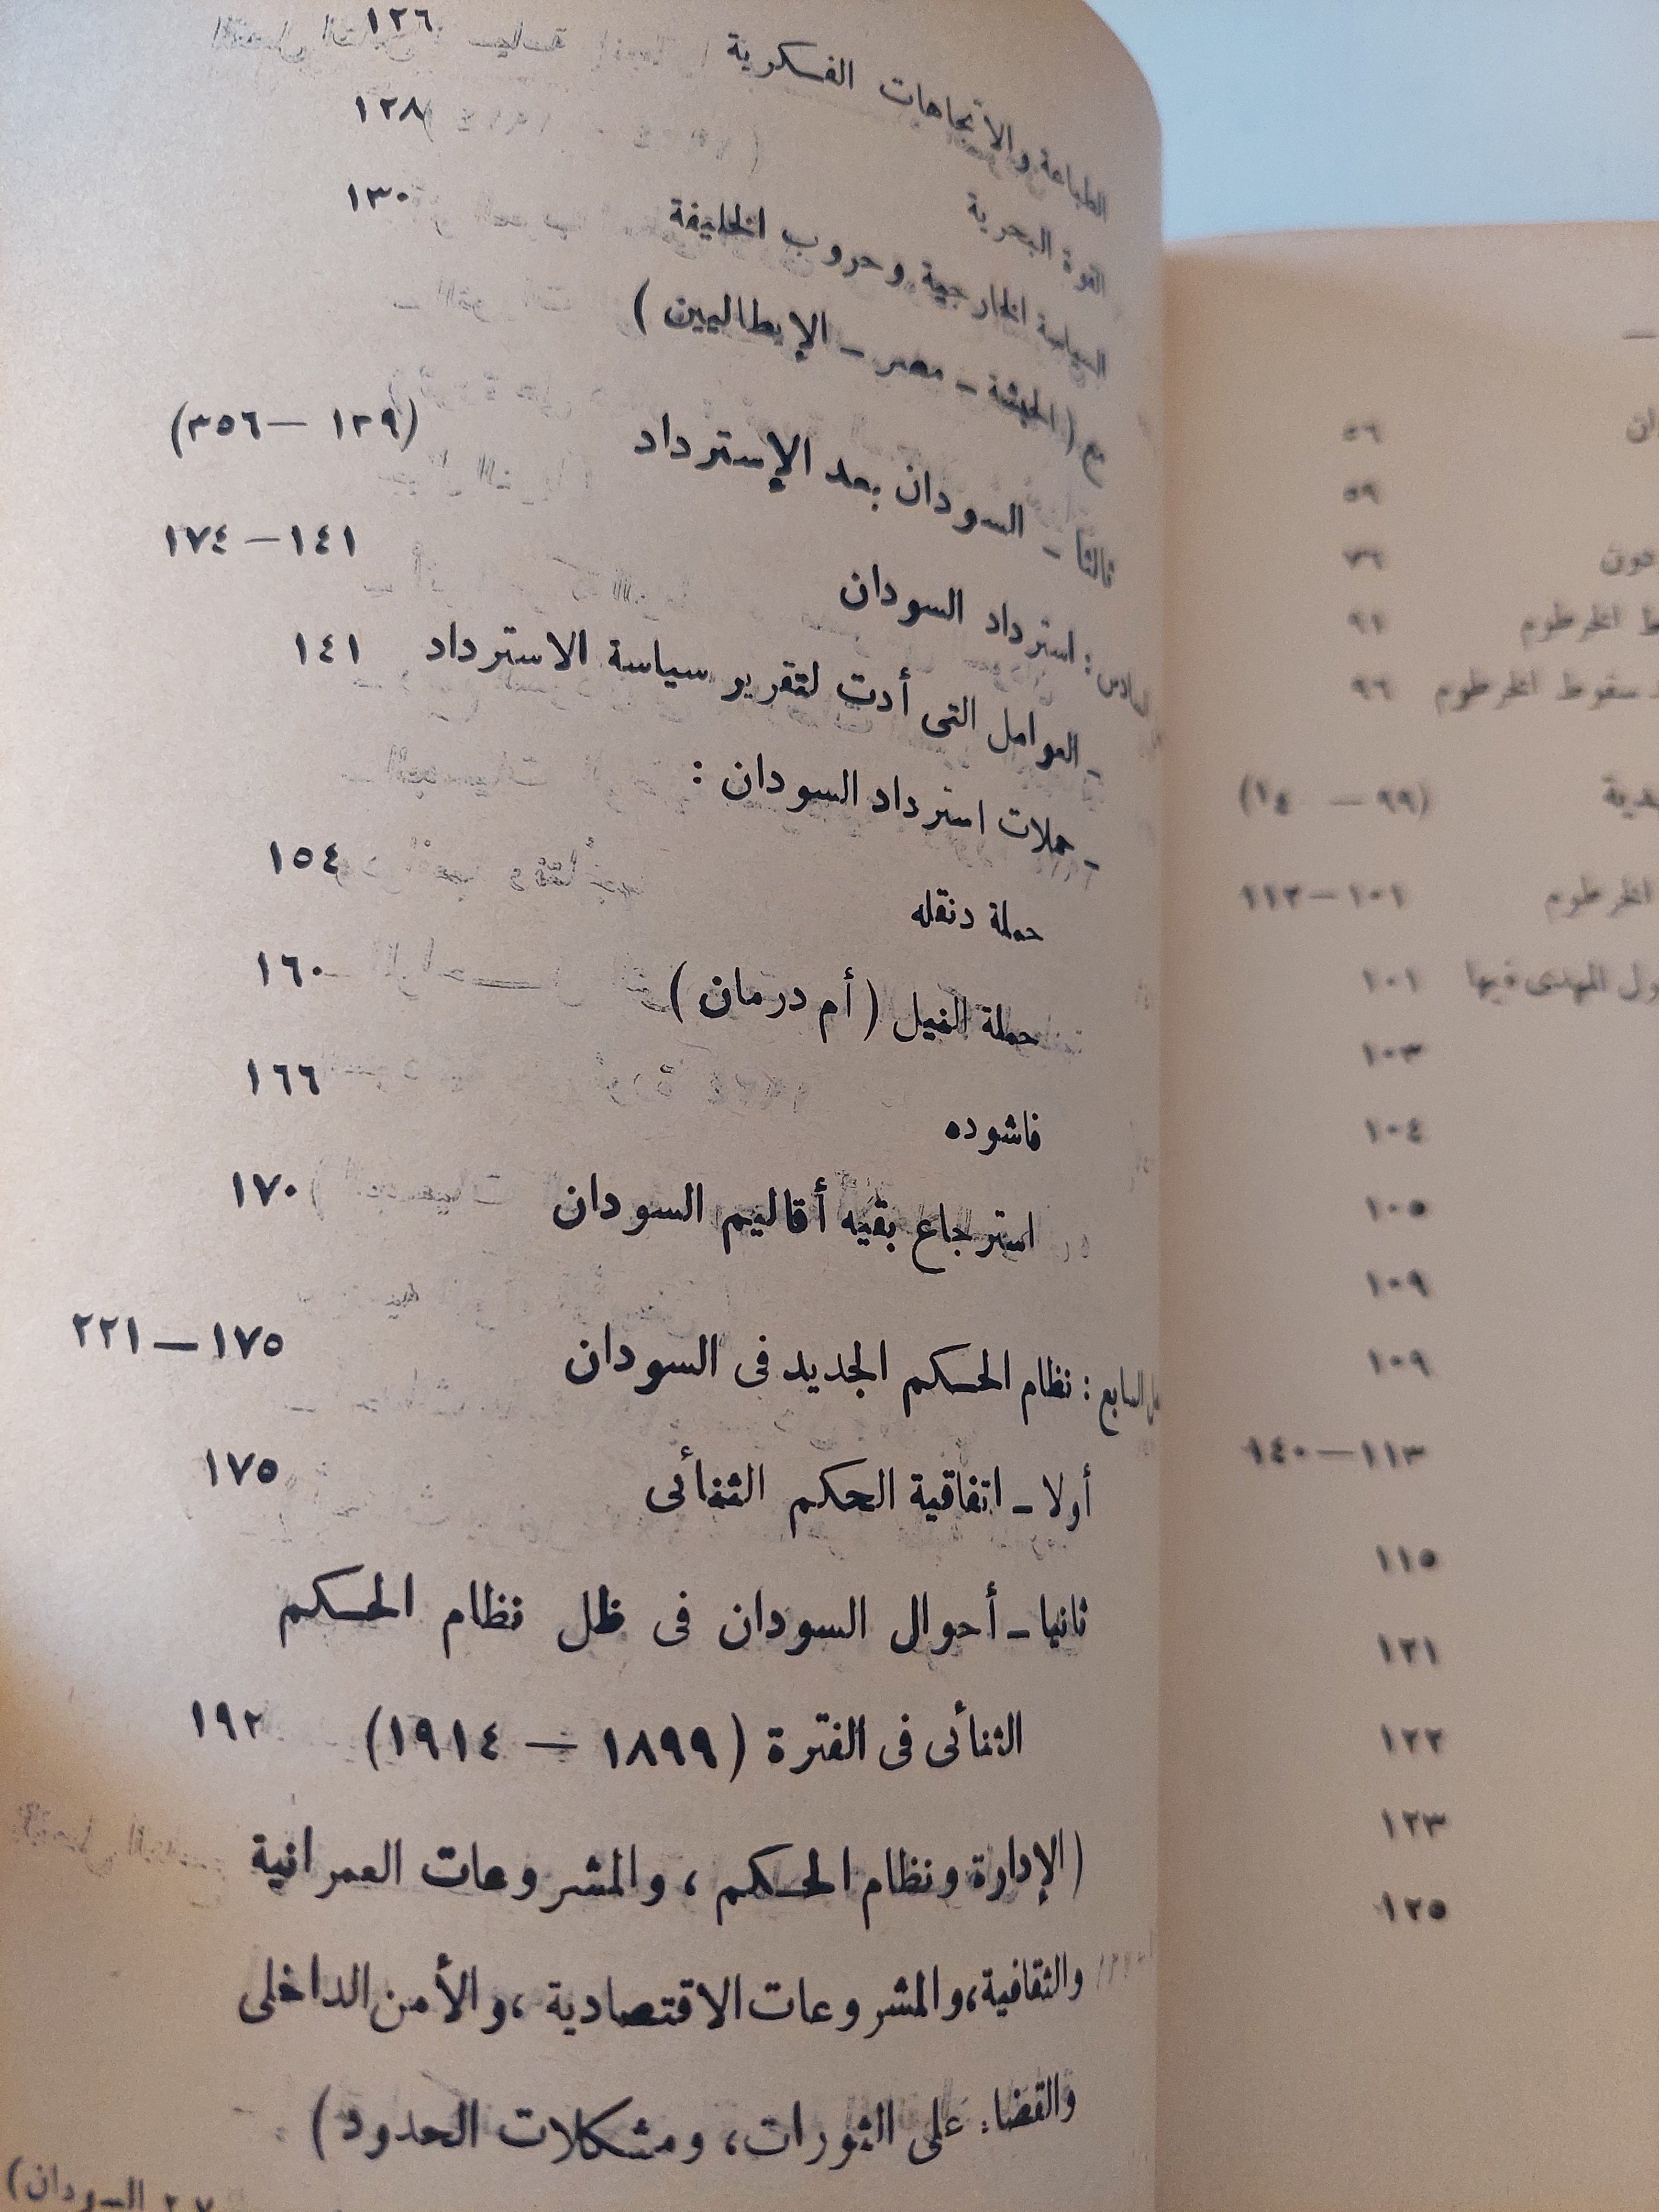 الطباعة والاتجاهات الفكرية ١٢٦
القوة البحرية ١٢٨
السياسة الخارجية وحروب الخليفة ١٣٠
مع (الحبشة - مصر - الإيطاليين)
ثالثا - السودان بعد الإسترداد (١٣٩ - ٣٥٦)
السادس : استرداد السودان ١٤١ - ١٧٤
- العوامل التى أدت لتقرير سياسة الاسترداد ١٤١
- حملات استرداد السودان :
حملة دنقله ١٥٤
حملة النيل ( أم درمان ) ١٦٠
فاشوده ١٦٦
استرجاع بقيه أقاليم السودان ١٧٠
السابع : نظام الحكم الجديد فى السودان ١٧٥ - ٢٢١
أولا - اتفاقية الحكم الثنائى ١٧٥
ثانيا - أحوال السودان فى ظل نظام الحكم
الثنائى فى الفترة (١٨٩٩ - ١٩١٤) ١٩٢
(الإدارة ونظام الحكم ، والمشروعات العمرانية
والثقافية، والمشروعات الاقتصادية ، والأمن الداخلى
والقضاء على الثورات، ومشكلات الحدود )
السودان)
٥٦
٥٩
٧٦
الخرطوم ٩٢
سقوط الخرطوم ٩٦
(٩٩ - ١٤)
الخرطوم ١٠١ - ١١٢
المهدى فيها ١٠١
١٠٣
١٠٤
١٠٥
١٠٩
١٠٩
١١٣ - ١٤٠
١١٥
١٢١
١٢٢
١٢٣
١٢٥